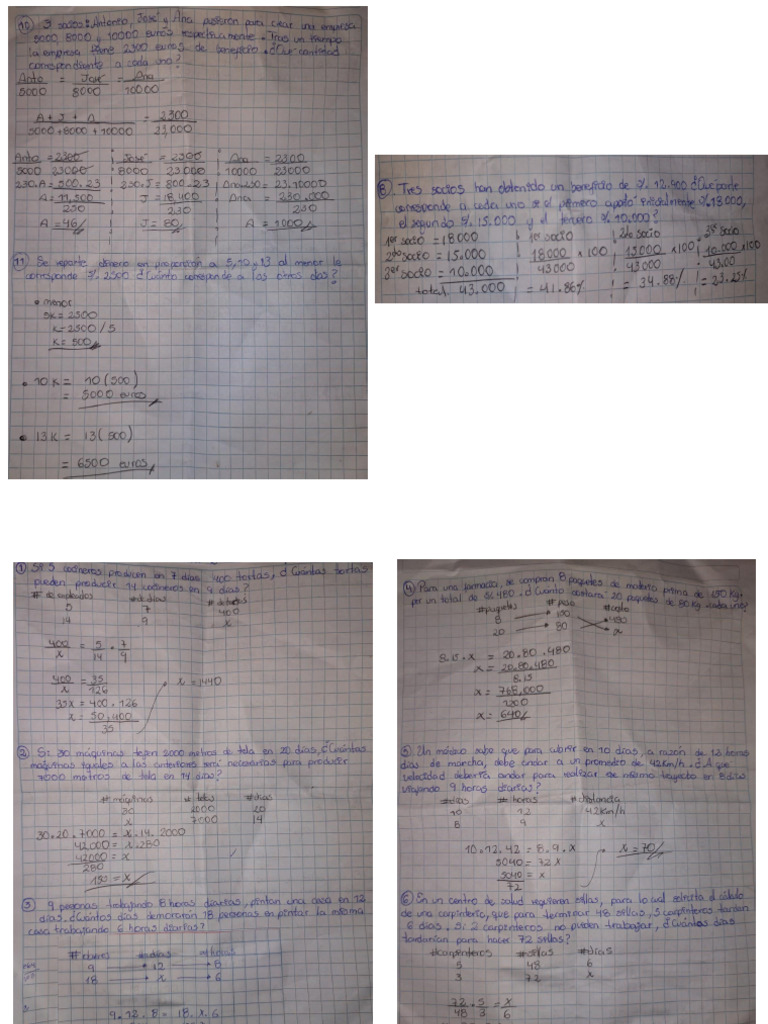 10) 3 socios: Antonio, José y Ana pusieron para crear una empresa
5000, 8000 y 10000 euros respectivamente. Tras un tiempo
la empresa tiene 2300 euros de beneficio. ¿Qué cantidad
correspondiente a cada uno?
Anto = José = Ana
5000 8000 10000
A + J + A = 2300
5000+8000+10000 23,000
Anto = 2300 José = 2300 Ana = 2300
5000 23000 8000 23.000 10000 23000
230.A = 500.23 230.J = 800.23
A = 11,500 J = 18,400 Ana = 230.000
230 230 230
A = 46/ J = 80/ A = 1000/
11) Se reparte dinero en proporción a 5, 10 y 13 al menor le
corresponde S/. 2500 ¿Cuánto corresponde a los otros dos?
• menor
5K = 2500
K = 2500 / 5
K = 500
• 10 K = 10 (500)
= 5000 euros
• 13 K = 13 (500)
= 6500 euros
8) Tres socios han obtenido un beneficio de S/. 12.900 ¿Qué parte
corresponde a cada uno si el primero aportó inicialmente S/.18000,
el segundo S/. 15.000 y el tercero S/. 10,000?
1er socio = 18000 1er socio 2do socio 3er socio
2do socio = 15.000 18000 × 100 15000 × 100 10.000 × 100
3er socio = 10.000 43000 43.000 4300
total 43.000 = 41.86% = 34.88% = 23.25%
1) Si 5 cocineros producen en 7 días 400 tortas, ¿Cuántas tortas
pueden producir 14 cocineros en 9 días?
# de empleados # de días
5 7 400
14 9 x
400 = 5 . 7
x 14 9
400 = 35 • x = 1440
x 126
35x = 400 . 126
x = 50,400
35
2) Si 30 máquinas tejen 2000 metros de tela en 20 días, ¿Cuántas
máquinas iguales a las anteriores será necesarias para producir
7000 metros de tela en 14 días?
# máquinas # telas # días
30 2000 20
x 7000 14
30.20.7000 = x.14.2000
42000 = x.280
42000 = x
280
150 = x
3) 9 personas trabajando 8 horas diarias, pintan una casa en 12
días. ¿Cuántos días demorarán 18 personas en pintar la misma
casa trabajando 6 horas diarias?
9 12 8
18 x 6
9.12.8 = 18.x.6
4) Para una formación, se compran 8 paquetes de materia prima de 150 Kg,
por un total de S/.480. ¿Cuánto costará 20 paquetes de 80 Kg. cada uno?
# paquetes # peso # costo
8 150 480
20 80 x
8.15.x = 20.80.480
x = 20.80.480
8.15
x = 768,000
1200
x = 640/
5) Un móvil sabe que para cubrir en 10 días, a razón de 12 horas
días de marcha, debe andar a un promedio de 42Km/h. ¿A que
velocidad debería andar para realizar el mismo trayecto en 8 días
viajando 9 horas diarias?
# días # horas # distancia
10 12 42Km/h
8 9 x
10.12.42 = 8.9.x • x = 70/
5040 = 72x
5040 = x
72
6) En un centro de salud requieren sillas, para lo cual solicita el cálculo
de una carpintería, que para terminar 48 sillas, 5 carpinteros tardan
6 días, si 2 carpinteros no pueden trabajar, ¿Cuántos días
tardarían para hacer 72 sillas?
# carpinteros # sillas # días
5 48 6
3 72 x
72 . 5 = x
48 3 6